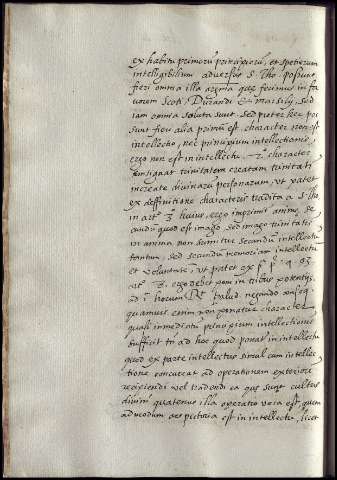 ex habitu primorum principiorum, et specierum
intelligibilium adversus S. Tho. possunt
fieri omnia illa argum que fecimus in fa
vorem Scoti, Durandi & Marsilij, sed
iam omnia soluta sunt. Sed preter hec pos
sunt fieri alia primum est, character non est
intellectio, nec principium intellectionis,
ergo non est in intellectu. 2. character
consignat trinitatem creatam trinitati
increate divinarum personarum, ut patet
ex deffinitione characteris tradita a S. Tho.
in art. 3 huius, ergo imprimi anime, se
cundum quod est imago. Sed imago trinitatis
in anima non sumitur secundum intellectu
tantum, sed secundum memoriam intellectu
et voluntate, ut patet ex p p q. 93.
art. ergo debet poni in tribus potentijs.
ad 1 horum negando conseq
quamvis enim non ponatur character
quasi immediatu principium intellectionis
sufficit to ad hoc quod ponat in intellectu
quod ex parte intellectus simul cum intellec
tione concurrat ad operationem exteriore
recipiendi vel tradendi ea que sunt cultus
divini quatenus illa operatio vera est quem
admodum ars pictoria est in intellectu, licet